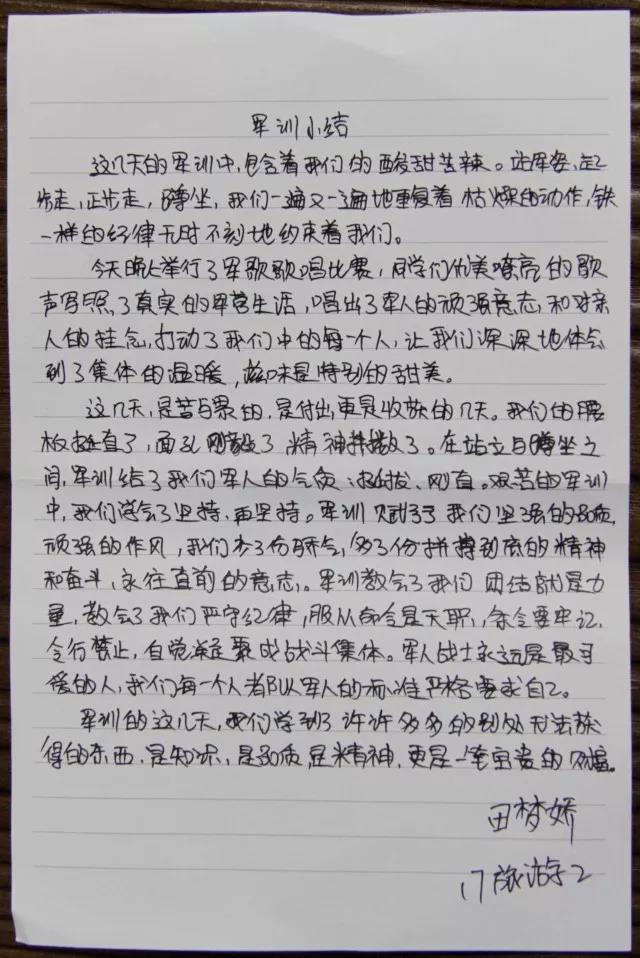 军训小结
这几天的军训中,包含着我们的酸甜苦辣。站军姿,起
步走,正步走,蹲坐,我们一遍又一遍地重复着枯燥的动作,铁
一样的纪律无时不刻地约束着我们。
今天晚上举行了军歌歌唱比赛,同学们优美嘹亮的歌
声写照了真实的军营生活,唱出了军人的顽强意志,和对亲
人的挂念,打动了我们中的每一个人,让我们深深地体会
到了集体的温暖,滋味是特别的甜美。
这几天,是苦与累的,是付出,更是收获的几天。我们的腰
板挺直了,面孔刚毅了精神抖擞了。在站立与蹲坐之
间,军训给了我们军人的气质:挺拔、刚直。艰苦的军训
中,我们学会了坚持,再坚持。军训赋予了我们坚强的品质,
顽强的作风,我们少了份骄气,多了份拼搏到底的精神
和奋斗,永往直前的意志。军训教会了我们团结就是力
量,教会了我们严守纪律,服从命令是天职,条令要牢记,
令行禁止,自觉凝聚成战斗集体。军人战士永远是最可
爱的人,我们每一个人都以军人的标准严格要求自己。
军训的这几天,我们学到了许许多多的别处无法获
得的东西,是知识,是品质是精神,更是一笔宝贵的财富。
田梦娇
17旅游2